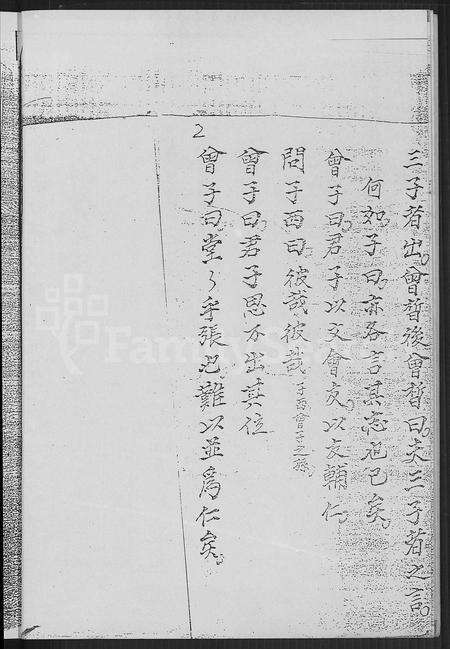 三子者出。曾晳後曾晳曰。夫三子者之言。
何如。子曰。亦各言其志也已矣。
曾子曰。君子以文會友。以友輔仁。
問子西曰。彼哉彼哉 子西曾子之孫。
曾子曰。君子思不出其位
2
曾子曰。堂々乎張也。難以並爲仁矣。
FamilySearch